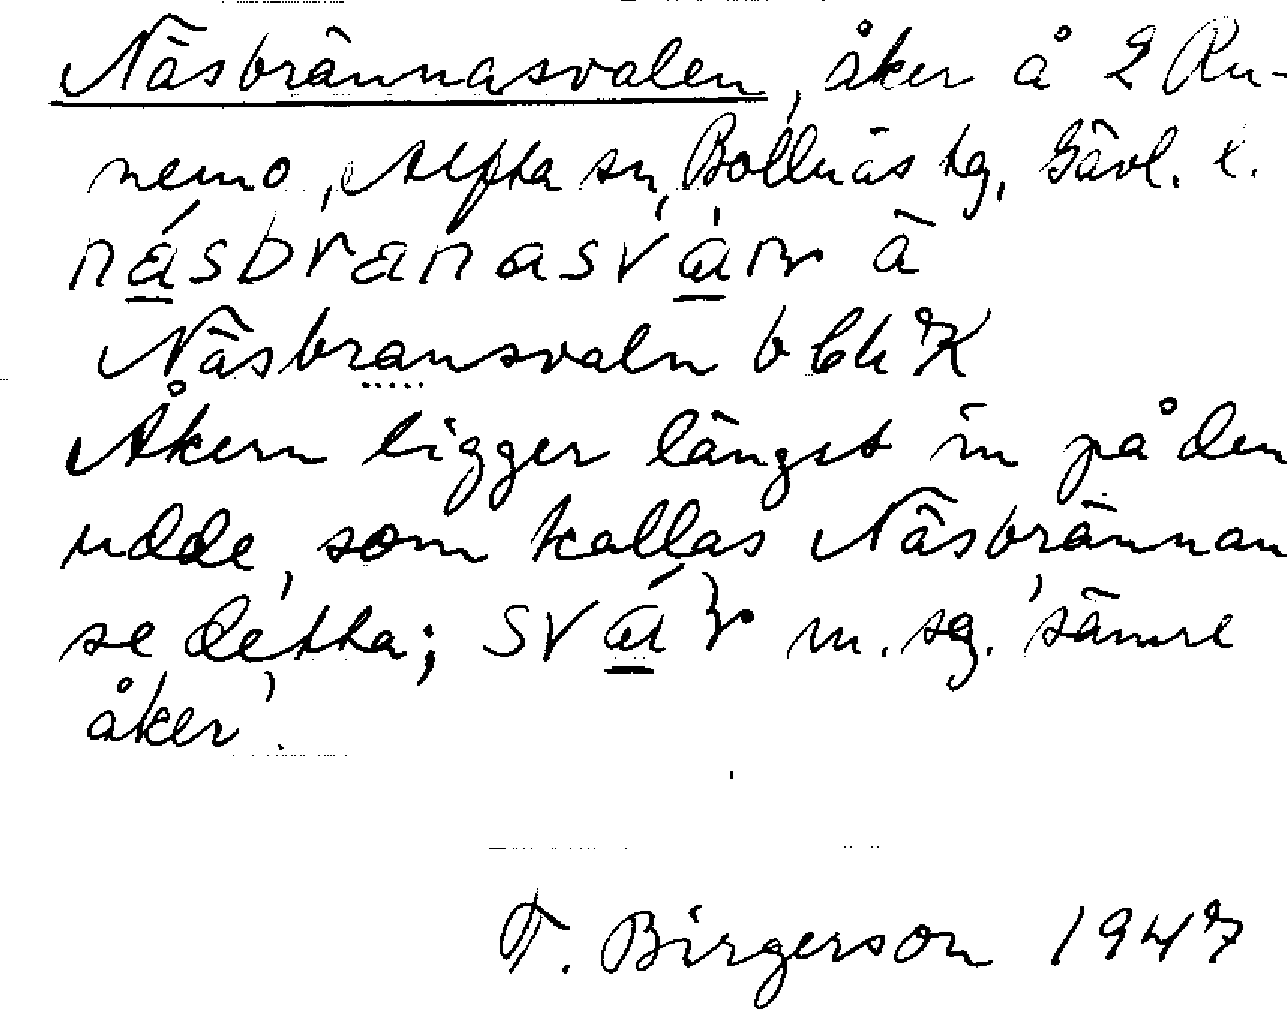 Näsbrännasvalen, åker å 2 Ru-
nemo, Alfta sn, Bollnäs tg, Gävl. l.
násbranasván å
Näsbransvaln b
Åkern ligger längst in på den
udde, som kallas Näsbrännan
se detta; m. sg. 'sämre
åker'.
T. Birgerson 1947